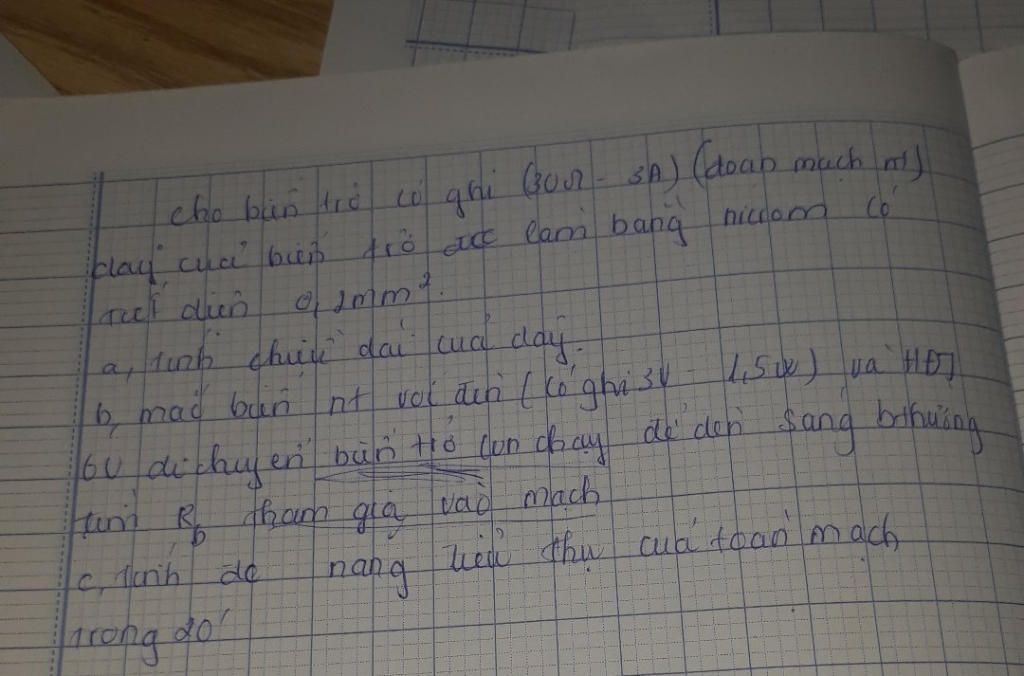 cho biến trở có ghi (30Ω - 3A) (đoạn mạch nt)
dây của biến trở đc làm bằng nicrom có
tiết diện 0,2mm².
a, tính chiều dài của dây.
b, mắc biến nt với đèn (có ghi 3V - 1,5W) và HĐT
6V di chuyển biến trở con chạy để đèn sáng bthường
tìm Rb tham gia vào mạch
c, tính để năng tiêu thụ của toàn mạch
trong đó